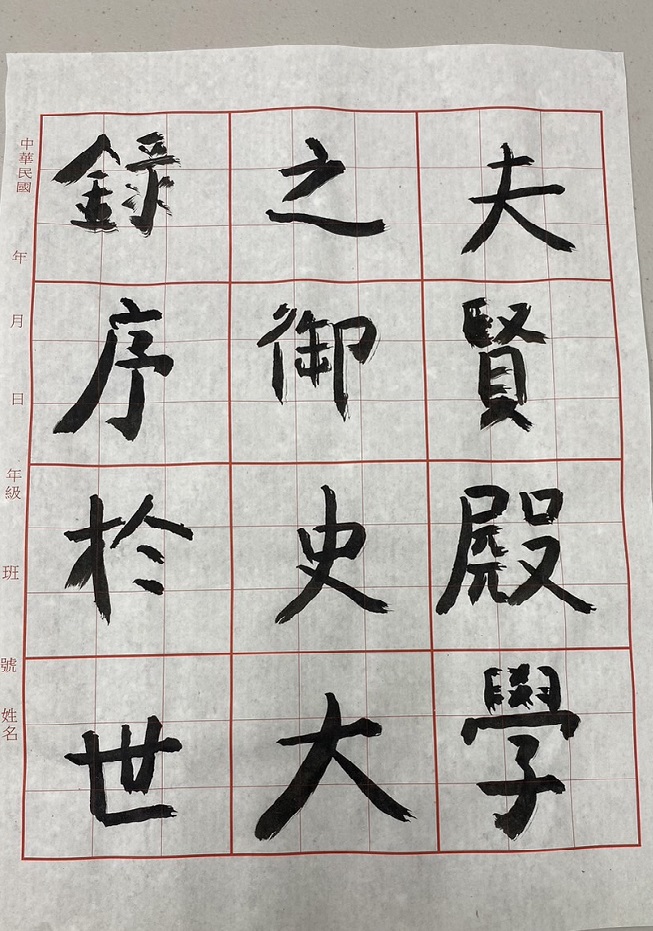 夫賢殿學
之御史大
錄序於世
中華民國 年 月 日 年級 班 號 姓名